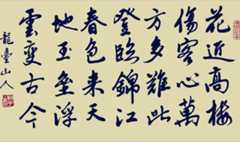 花近高樓
傷客心萬
方多難此
登臨錦江
春色來天
地玉壘浮
雲變古今
龍臺山人